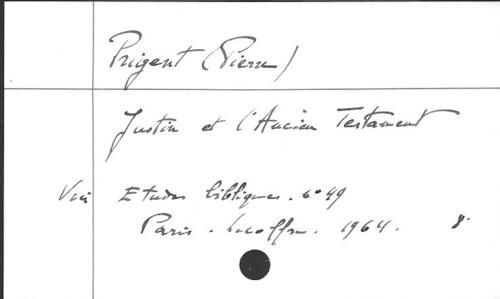 Prigent (Pierre)
Justin et l'Ancien Testament
Voir Etudes bibliques. n° 49
Paris. Lecoffre. 1964. 8°